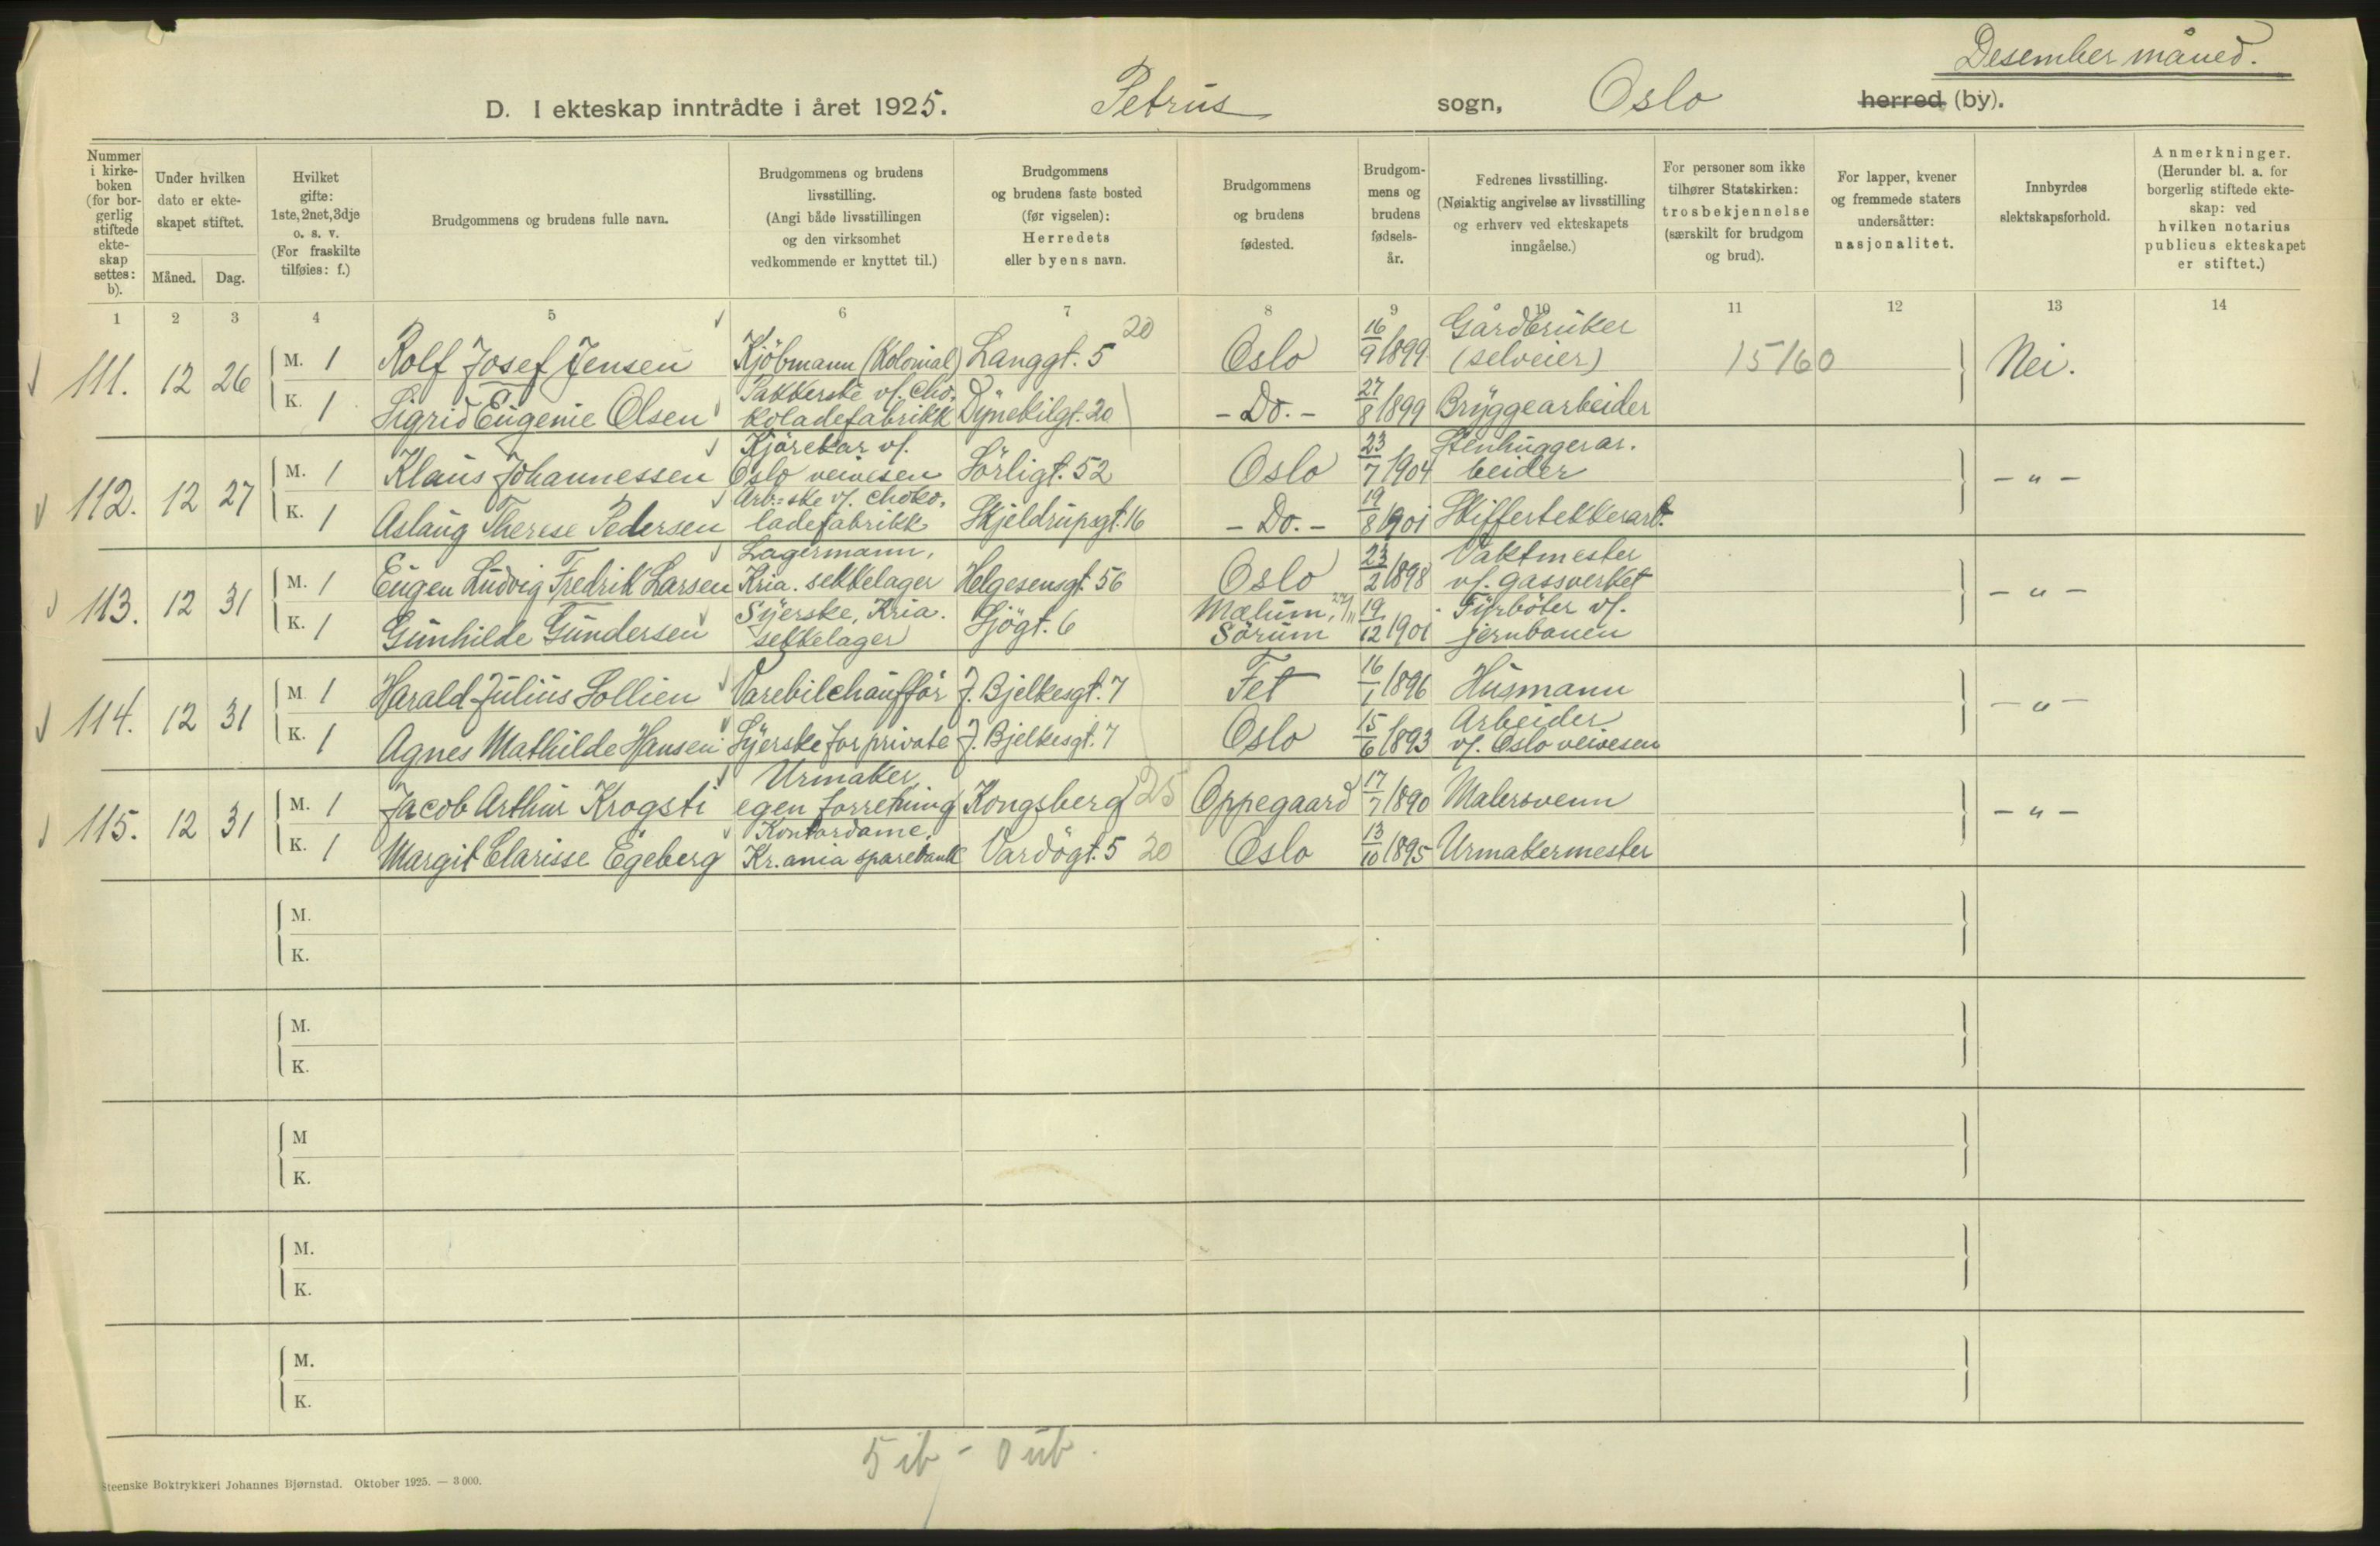 Desember måned.
D. I ekteskap inntrådte i året 1925. Petrus sogn, Oslo herred (by).
Nummer i kirke-boken (for bor-gerlig stiftede ekte-skap settes: b).
Under hvilken dato er ekte-skapet stiftet.
Måned. Dag.
Hvilket gifte: 1ste, 2net, 3dje o. s. v. (For fraskilte tilføies: f.)
Brudgommens og brudens fulle navn.
Brudgommens og brudens livsstilling. (Angi både livsstillingen og den virksomhet vedkommende er knyttet til.)
Brudgommens og brudens faste bosted (før vigselen): Herredets eller byens navn.
Brudgommens og brudens fødested.
Brudgom-mens og brudens fødsels-år.
Fedrenes livsstilling. (Nøiaktig angivelse av livsstilling og erhverv ved ekteskapets inngåelse.)
For personer som ikke tilhører Statskirken: trosbekjennelse (særskilt for brudgom og brud).
For lapper, kvener og fremmede staters undersåtter: nasjonalitet.
Innbyrdes slektskapsforhold.
Anmerkninger. (Herunder bl. a. for borgerlig stiftede ekte-skap: ved hvilken notarius publicus ekteskapet er stiftet.)
1 2 3 4 5 6 7 8 9 10 11 12 13 14
111. 12 26 M. 1 Rolf Josef Jensen Kjöbmann (Kolonial) Langgt. 5 20 Oslo 16/9 1899 Gårdbruker (selveier) 15160 Nei.
K. 1 Sigrid Eugenie Olsen Pakkerske v/. cho-koladefabrikk Dynekilgt. 20 - Do. - 27/8 1899 Bryggearbeider
112. 12 27 M. 1 Klaus Johannessen Kjörekar v/. Oslo veivesen Sörligt. 52 Oslo 23/7 1904 Stenhuggerar.beider - " -
K. 1 Aslaug Therese Pedersen Arb.=ske v/. choko-ladefabrikk Skjeldrupsgt. 16 - Do. - 19/8 1901 Skiffertekkerarb.
113. 12 31 M. 1 Eugen Ludvig Fredrik Larsen Lagermann, Kria. sekkelager Helgesensgt. 56 Oslo 23/2 1898 Vaktmester v/. gassverket - " -
K. 1 Gunhilde Gundersen Syerske, Kria. sekkelager Sjögt. 6 Mælum, Sörum 19/12 1901 Fyrböter v/. jernbanen
114. 12 31 M. 1 Harald Julius Sollien Varebilchaufför J. Bjelkesgt. 7 Fet 16/1 1896 Husmann - " -
K. 1 Agnes Mathilde Hansen Syerske for private J. Bjelkesgt. 7 Oslo 15/6 1893 Arbeider v/. Oslo veivesen
115. 12 31 M. 1 Jacob Arthur Krogsti Urmaker, egen forretning Kongsberg 25 Oppegaard 17/7 1890 Malersvenn - " -
K. 1 Margit Clarisse Egeberg Kontordame, Kr.ania sparebank Vardögt. 5 20 Oslo 13/10 1895 Urmakermester
M.
K.
M.
K.
M
K.
M.
K.
M.
K.
5 ib - 0 ub.
Steenske Boktrykkeri Johannes Bjørnstad. Oktober 1925. — 3 000.